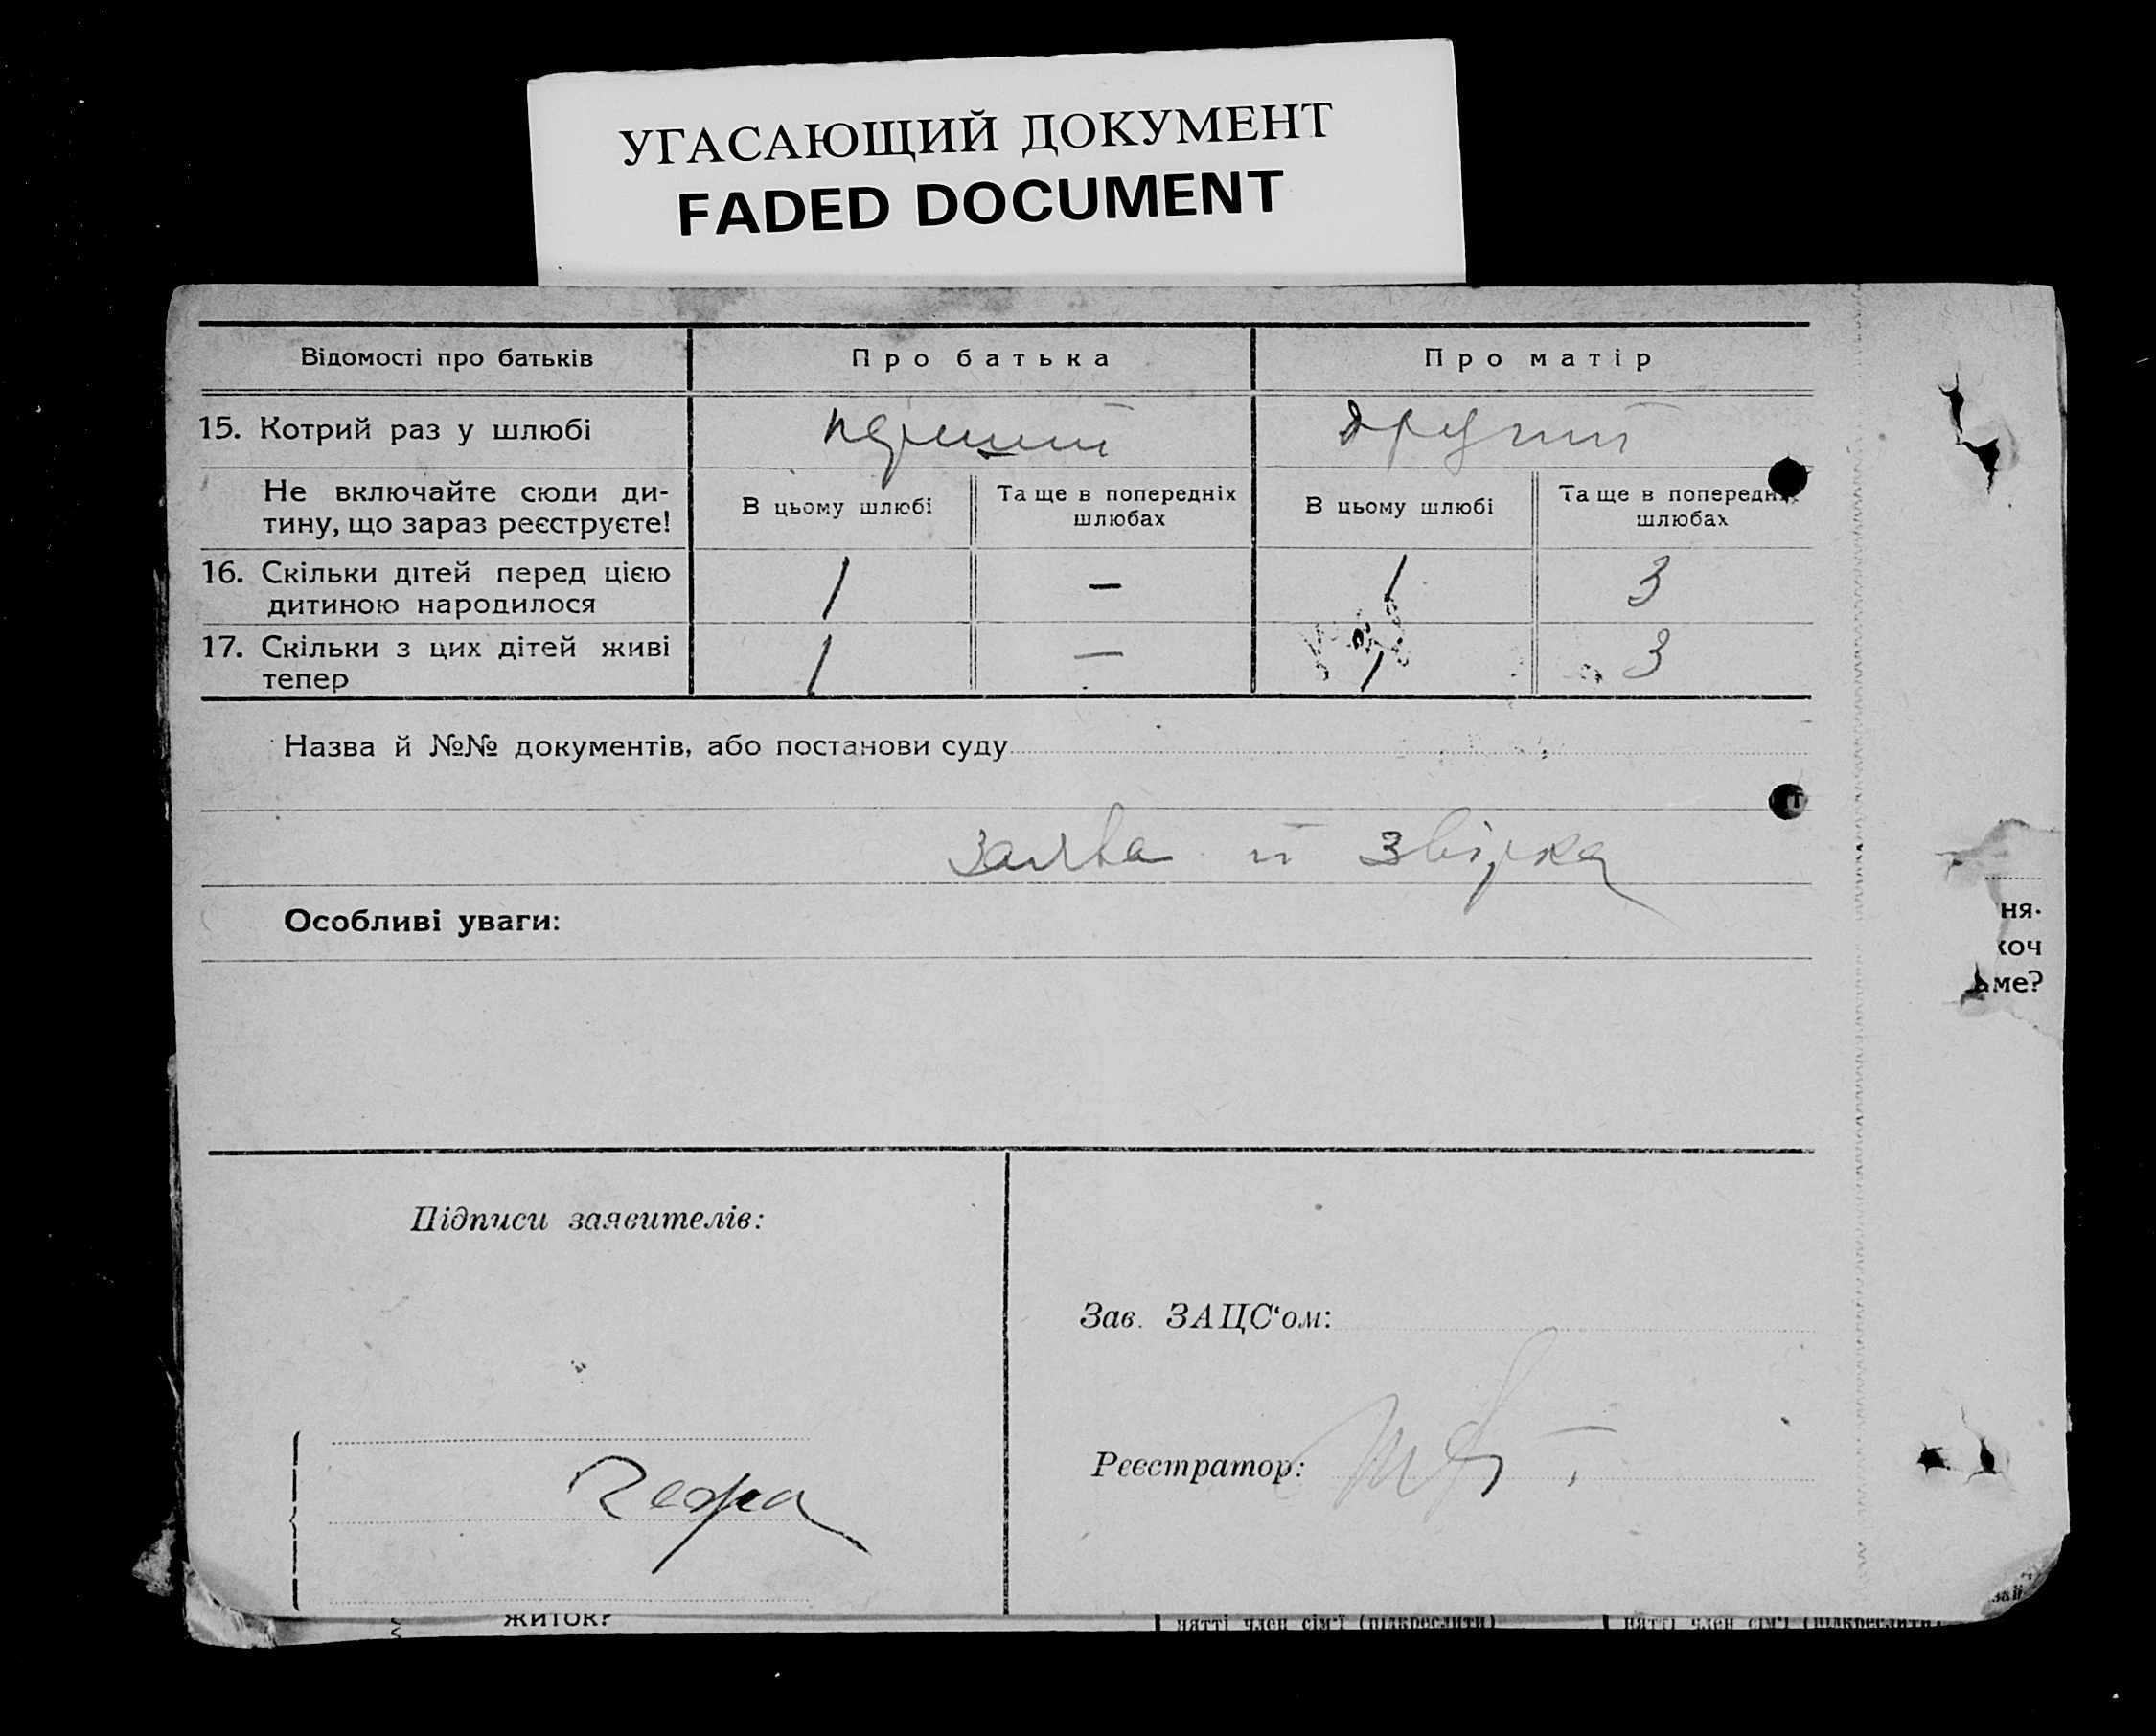 УГАСАЮЩИЙ ДОКУМЕНТ
FADED DOCUMENT
Відомості про батьків
Про батька
Про матір
15. Котрий раз у шлюбі
перший
другий
Не включайте сюди ди-
тину, що зараз реєструєте!
В цьому шлюбі
Та ще в попередніх
шлюбах
В цьому шлюбі
Та ще в попередніх
шлюбах
16. Скільки дітей перед цією
дитиною народилося
1
—
1
3
17. Скільки з цих дітей живі
тепер
1
—
1
3
Назва й №№ документів, або постанови суду
заява й звірка
Особливі уваги:
ня.
хоч
ме?
Підписи заявителів:
Зав. ЗАЦС‘ом:
Реєстратор:
житок?
нятті член сім'ї (підкреслити)
нятті член сім'ї (підкреслити)